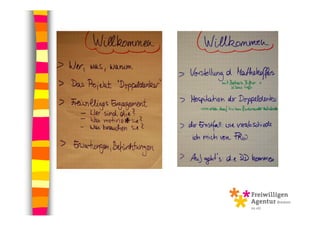 Willkommen
> Wer, was, warum
> Das Projekt "Doppeldenker"
> Freiwilliges Engagement
– Wer sind die?
– Was motiviert sie?
– Was brauchen sie?
> Erwartungen, Befürchtungen
Willkommen
> Vorstellung d. Mathekoffers
> Hospitation der Doppeldenker
> der Ernstfall: wie verabschiede
ich mich von FRW
> Auf geht's die DD kommen
Freiwilligen
Agentur Bremen